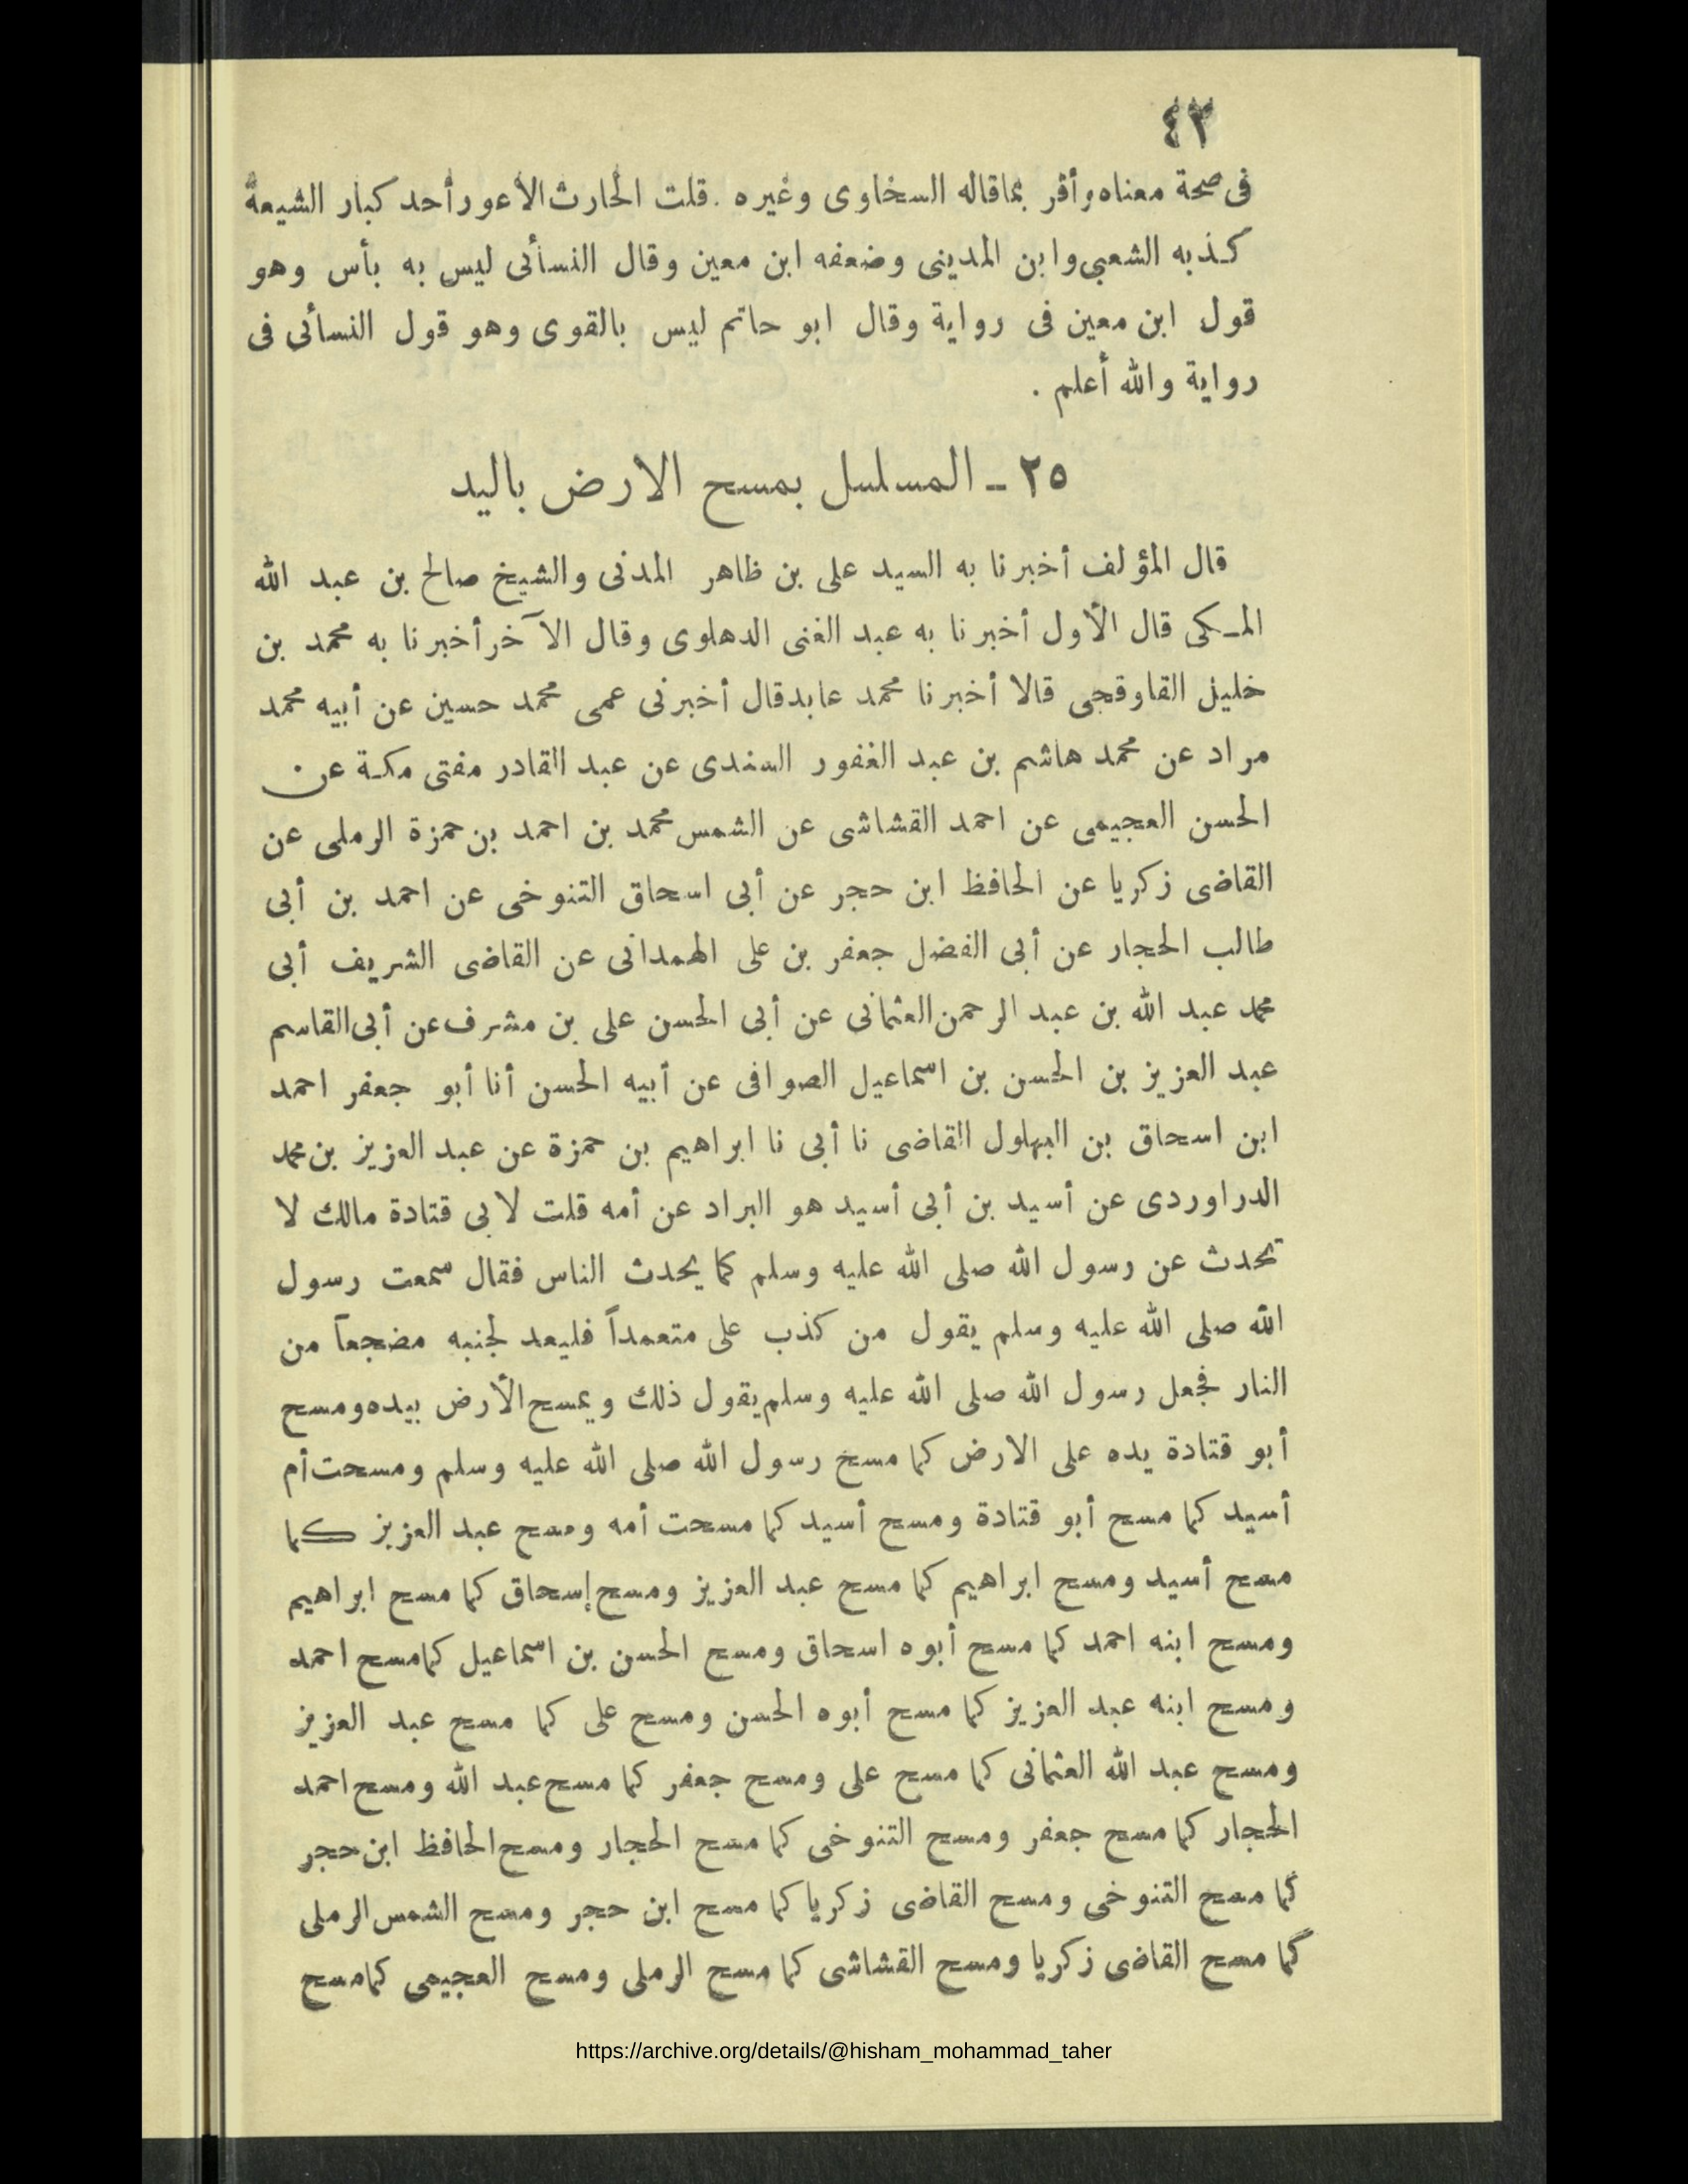 ٤٢
فى صحة معناه وأقر بما قاله السخاوى وغيره . قلت الحارث الأعور أحد كبار الشيعة
كذبه الشعبي وابن المدينى وضعفه ابن معين وقال النسأئى ليس به بأس وهو
قول ابن معين فى رواية وقال ابو حاتم ليس بالقوى وهو قول النسأئى فى
رواية والله أعلم .
٢٥ ـ المسلسل بمسح الارض باليد
قال المؤلف أخبرنا به السيد على بن ظاهر المدنى والشيخ صالح بن عبد الله
المـكى قال الأول أخبرنا به عبد الغنى الدهلوى وقال الآخر أخبرنا به محمد بن
خليل القاوقجى قالا أخبرنا محمد عابد قال أخبرنى عمى محمد حسين عن أبيه محمد
مراد عن محمد هاشم بن عبد الغفور السندى عن عبد القادر مفتى مكة عن
الحسن العجيمى عن احمد القشاشى عن الشمس محمد بن احمد بن حمزة الرملى عن
القاضى زكريا عن الحافظ ابن حجر عن أبى اسحاق التنوخى عن احمد بن أبى
طالب الحجار عن أبى الفضل جعفر بن على الهمدانى عن القاضى الشريف أبى
محمد عبد الله بن عبد الرحمن العثمانى عن أبى الحسن على بن مشرف عن أبى القاسم
عبد العزيز بن الحسن بن اسماعيل الصوافى عن أبيه الحسن أنا أبو جعفر احمد
ابن اسحاق بن البهلول القاضى نا أبى نا ابراهيم بن حمزة عن عبد العزيز بن محمد
الدراوردى عن أسيد بن أبى أسيد هو البراد عن أمه قلت لابى قتادة مالك لا
تحدث عن رسول الله صلى الله عليه وسلم كما يحدث الناس فقال سمعت رسول
الله صلى الله عليه وسلم يقول من كذب على متعمداً فليعد لجنبه مضجعاً من
النار فجعل رسول الله صلى الله عليه وسلم يقول ذلك ويمسح الأرض بيده ومسح
أبو قتادة يده على الارض كما مسح رسول الله صلى الله عليه وسلم ومسحت أم
أسيد كما مسح أبو قتادة ومسح أسيد كما مسحت أمه ومسح عبد العزيز كما
مسح أسيد ومسح ابراهيم كما مسح عبد العزيز ومسح إسحاق كما مسح ابراهيم
ومسح ابنه احمد كما مسح أبوه اسحاق ومسح الحسن بن اسماعيل كما مسح احمد
ومسح ابنه عبد العزيز كما مسح أبوه الحسن ومسح على كما مسح عبد العزيز
ومسح عبد الله العثمانى كما مسح على ومسح جعفر كما مسح عبد الله ومسح احمد
الحجار كما مسح جعفر ومسح التنوخى كما مسح الحجار ومسح الحافظ ابن حجر
كما مسح التنوخى ومسح القاضى زكريا كما مسح ابن حجر ومسح الشمس الرملى
كما مسح القاضى زكريا ومسح القشاشى كما مسح الرملى ومسح العجيمى كما مسح
https://archive.org/details/@hisham_mohammad_taher